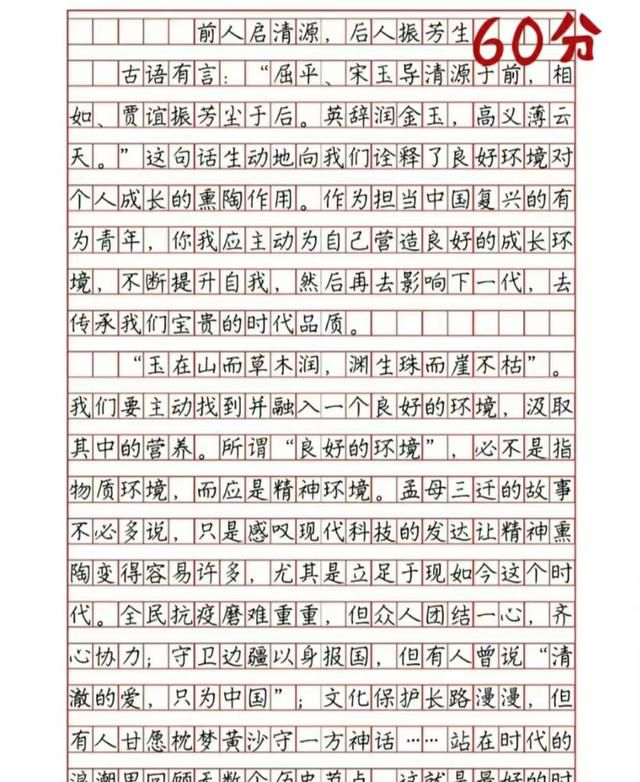 前人启清源，后人振芳生
60分
古语有言：“屈平、宋玉导清源于前，相
如、贾谊振芳尘于后。英辞润金玉，高义薄云
天。”这句话生动地向我们诠释了良好环境对
个人成长的熏陶作用。作为担当中国复兴的有
为青年，你我应主动为自己营造良好的成长环
境，不断提升自我，然后再去影响下一代，去
传承我们宝贵的时代品质。
“玉在山而草木润，渊生珠而崖不枯”。
我们要主动找到并融入一个良好的环境，汲取
其中的营养。所谓“良好的环境”，必不是指
物质环境，而应是精神环境。孟母三迁的故事
不必多说，只是感叹现代科技的发达让精神熏
陶变得容易许多，尤其是立足于现如今这个时
代。全民抗疫磨难重重，但众人团结一心，齐
心协力；守卫边疆以身报国，但有人曾说“清
澈的爱，只为中国”；文化保护长路漫漫，但
有人甘愿枕梦黄沙守一方神话……站在时代的
浪潮里回顾无数个历史节点，这就是最好的